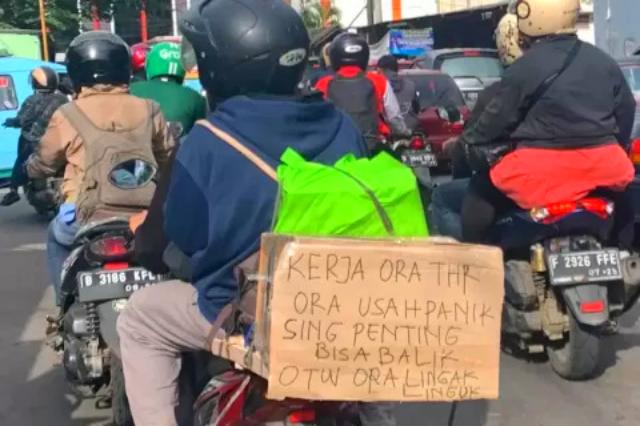 Grab
KERJA ORA THR
ORA USAH PANIK
SING PENTING
BISA BALIK
OTW ORA LINGAK
LINGUK
B 3186 KFL
F 2926 FFE
07·25